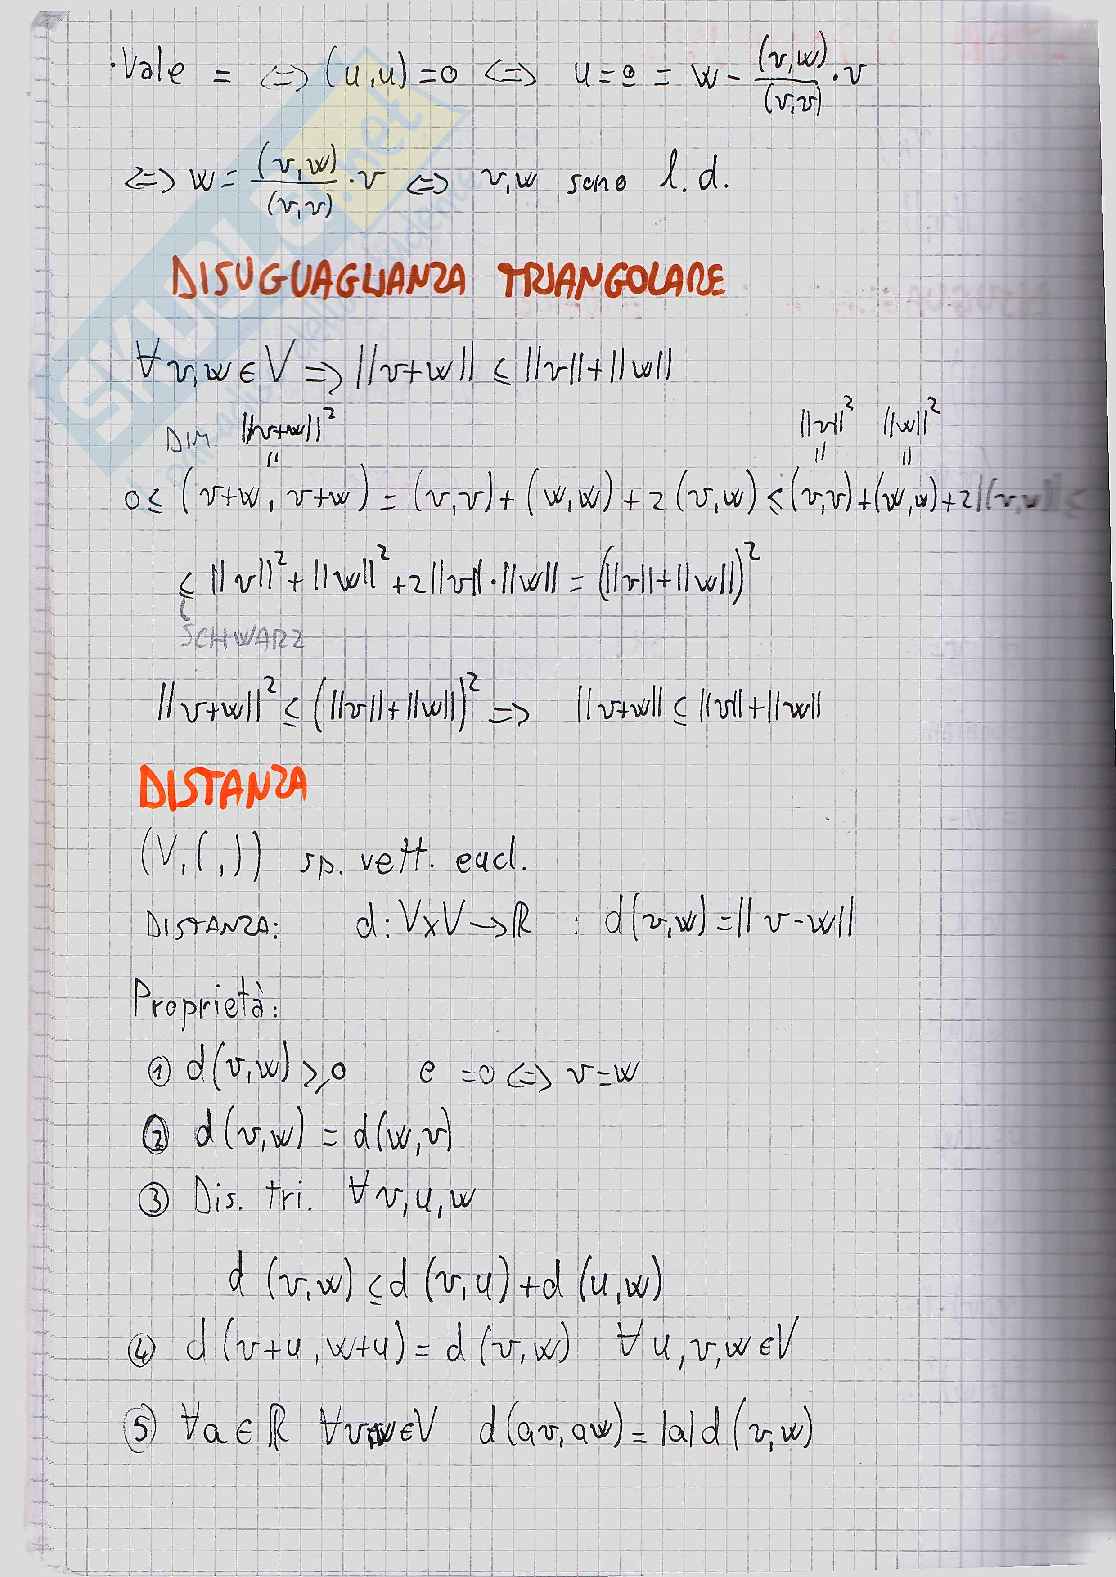 ·Vale = ⇔ (u,u)=0 ⇔ u=0 = w - (v,w)/(v,v) · v
⇔ w = (v,w)/(v,v) · v ⇔ v,w sono l.d.
DISUGUAGLIANZA TRIANGOLARE
∀ v,w ∈ V ⇒ ||v+w|| ≤ ||v|| + ||w||
DIM ||v+w||² ||v||² ||w||²
0 ≤ (v+w, v+w) = (v,v) + (w,w) + 2(v,w) ≤ (v,v) + (w,w) + 2|(v,w)| ≤
≤ ||v||² + ||w||² + 2||v||·||w|| = (||v|| + ||w||)²
SCHWARZ
||v+w||² ≤ (||v|| + ||w||)² ⇒ ||v+w|| ≤ ||v|| + ||w||
DISTANZA
(V,(,)) sp. vett. eucl.
DISTANZA: d: V×V → ℝ : d(v,w) = ||v-w||
Proprietà:
① d(v,w) ≥ 0 e =0 ⇔ v=w
② d(v,w) = d(w,v)
③ Dis. tri. ∀ v,u,w
d(v,w) ≤ d(v,u) + d(u,w)
④ d(v+u, w+u) = d(v,w) ∀ u,v,w ∈ V
⑤ ∀a ∈ ℝ ∀v,w ∈ V d(av,aw) = |a| d(v,w)
SKUOLA.net